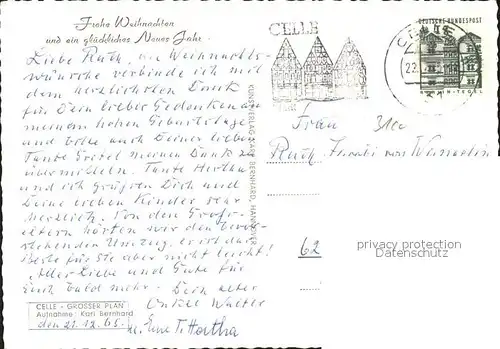 Frohe Weihnachten
und ein glückliches Neues Jahr.
Liebe Ruth, die Weihnachts-
wünsche verbinde ich mit
dem herzlichsten Dank
für Dein lieber Gedenken an
meinem hohen Geburtstage
und bitte auch Deiner lieben
Tante Gretel meinen Dank zu
übermitteln. Tante Hertha
und ich grüßen Dich und
Deine lieben Kinder sehr
herzlich. Von den Groß-
eltern hörten wir den bevor-
stehenden Umzug, er ist das
Beste für Sie aber nicht leicht!
Alles Liebe und Gute für
Euch bald mehr - Dein alter
Onkel Walter
u. Eure T. Hertha
CELLE - GROSSER PLAN
Aufnahme: Karl Bernhard
den 21.12.65.
KUNSTVERLAG KARL BERNHARD, HANNOVER
CELLE
DEUTSCHE BUNDESPOST
CELLE
BERLIN-TEGEL
Frau
Ruth
62
privacy protection
Datenschutz